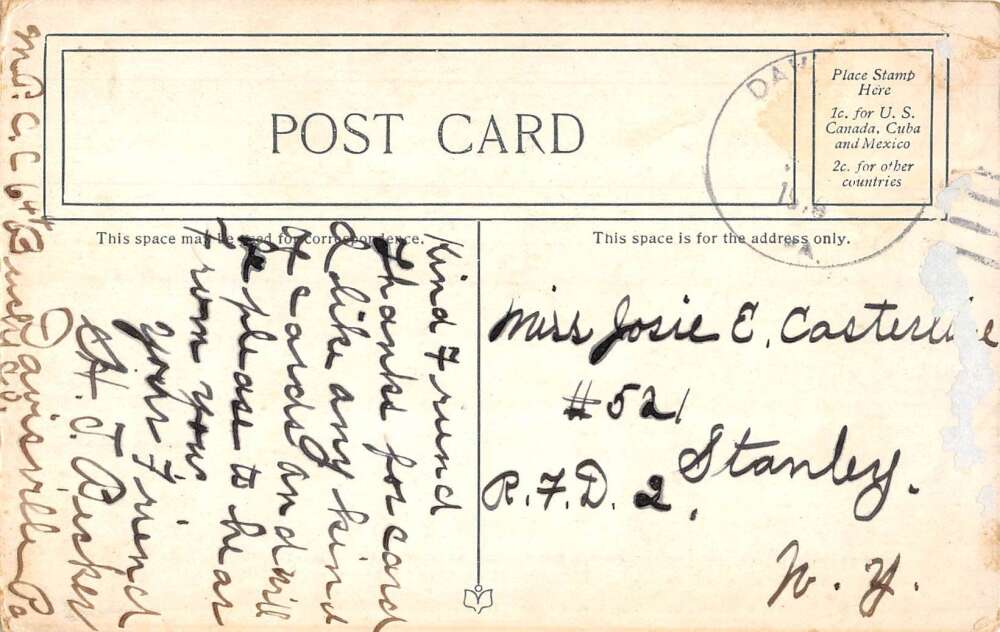 POST CARD
Place Stamp
Here
1c. for U. S.
Canada, Cuba
and Mexico
2c. for other
countries
DAV
PA.
This space may be used for correspondence.
Kind Friend
Thanks for card
I like any kind
of cards and will
be please to hear
from you.
your Friend
H. J. Bisker
Davisville Pa
Bucks Co.
M. P. C. C 64
This space is for the address only.
Miss Josie E. Casterline
#521
R.F.D. 2. Stanley.
N. Y.